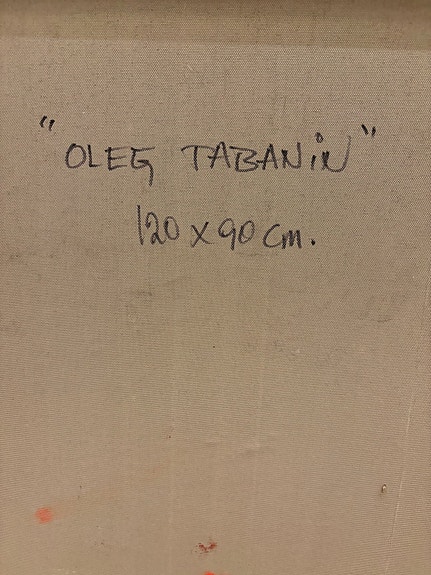 "OLEG TABANiN"
120 x 90 cm.